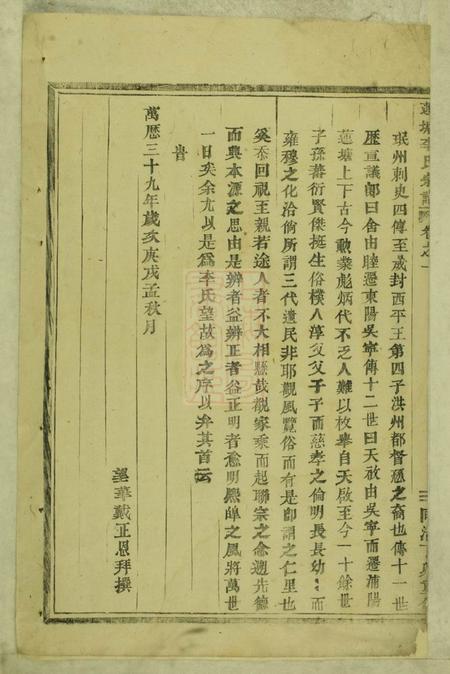 蓮塘李氏宗譜 卷之一
岷州刺史四傳至晟封西平王第四子洪州都督憲之裔也傳十一世
歷宣議郎曰舍由睦遷東陽吳寧傳十二世曰天啟由吳寧而遷蒲陽
蓮塘上下古今勳業彪炳代不乏人難以枚舉自天啟至今一十餘世
子孫蕃衍賢傑挺生俗樸人淳父父子子而慈孝之倫明長長幼幼而
雍穆之化洽倘所謂三代遺民非耶觀風覽俗而有是即謂之仁里也
奚忝回視王親若途人者不大相懸哉觀家乘而起聯宗之念遡先德
而興本源之思由是辨者益辨正者益正明者愈明熙皞之風將萬世
一日矣余尤以是為李氏望故為之序以弁其首云
旹
萬曆三十九年歲次庚戌孟秋月
望華戴正恩拜撰